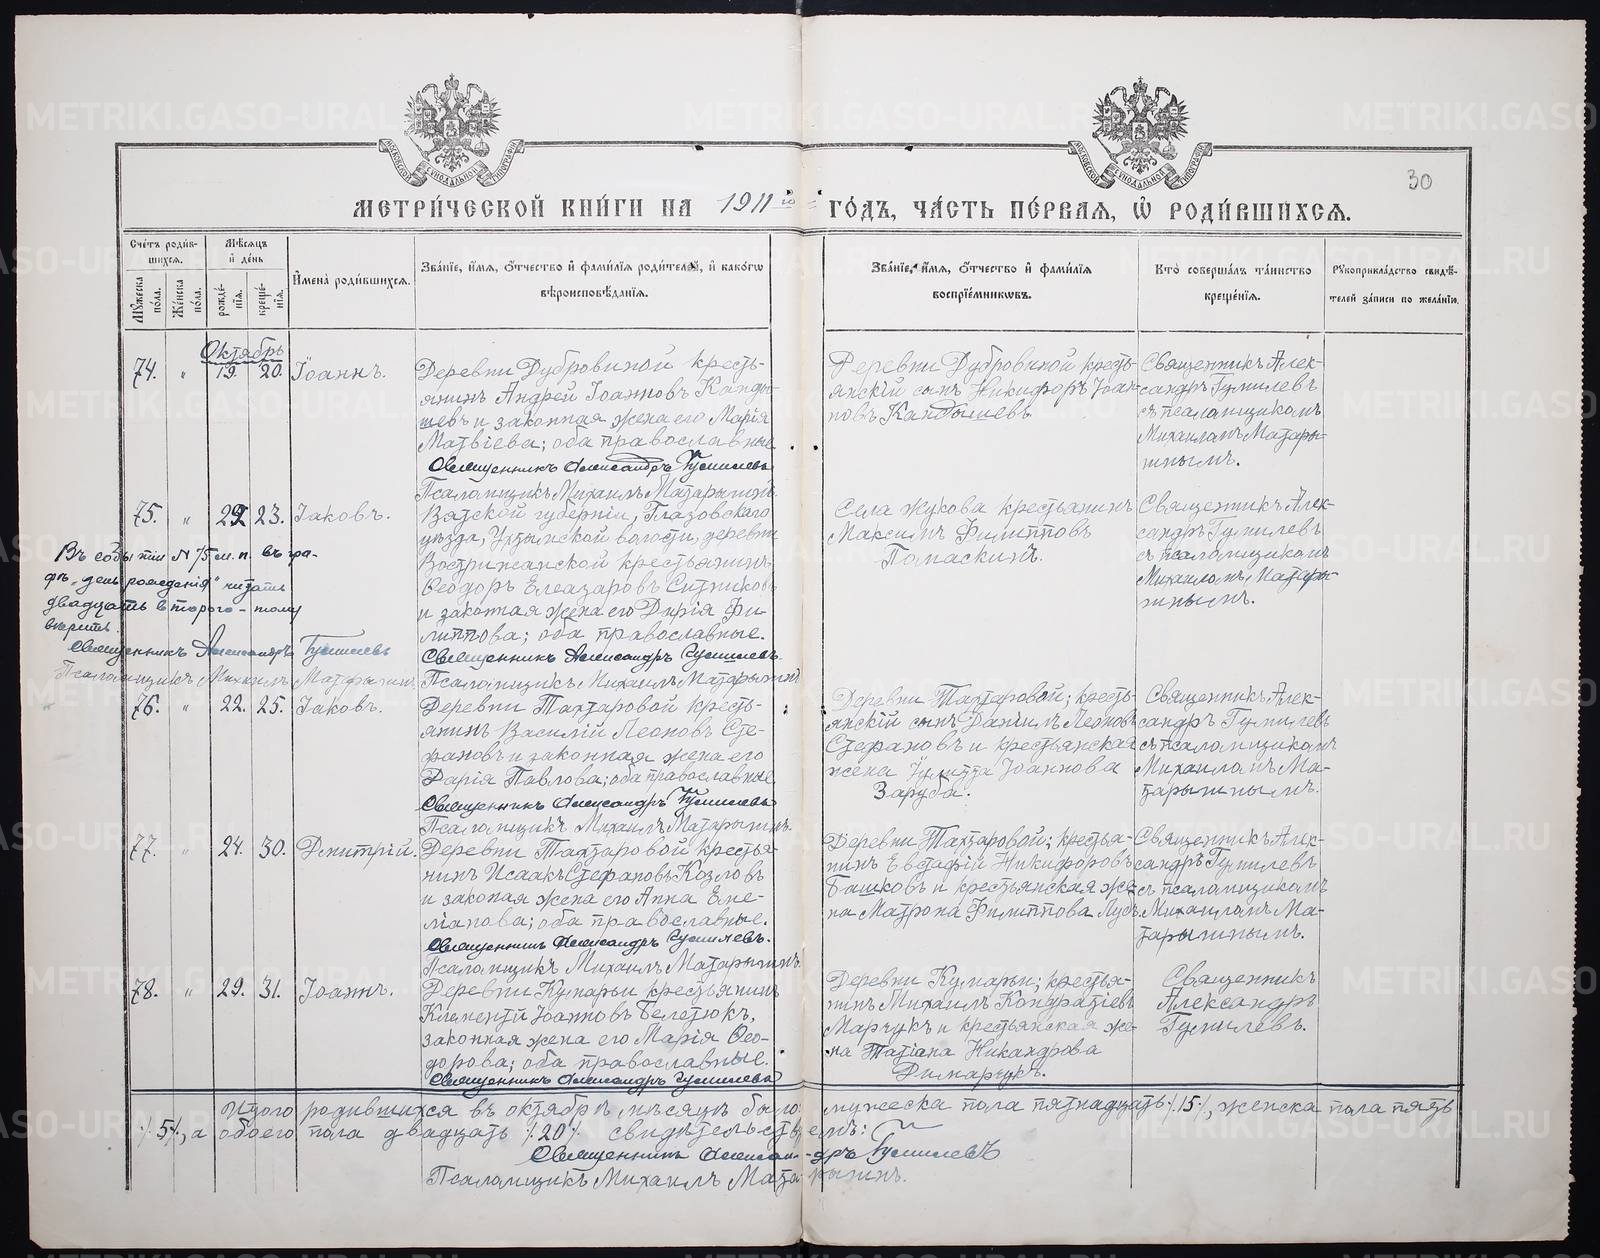 30
МЕТРИ́ЧЕСКОЙ КНИ́ГИ НА 1911 го ГО́ДЪ, ЧА́СТЬ ПЕ́РВАЯ, Ѡ РОДИ́ВШИХСЯ.
Сче́тъ роди́в-
шихся.
Мѣсяцъ
и де́нь
Му́жеска по́ла.
Же́нска по́ла.
рожде́-
нія.
креще́-
нія.
Имена́ роди́вшихся.
Зва́ніе, и́мя, о́тчество и фами́лія роди́телей, и како́гѡ
вѣроисповѣ́данія.
Зва́ніе, и́мя, о́тчество и фами́лія
воспріе́мниковъ.
Кто̀ соверша́лъ та́инство
креще́нія.
Рукоприкла́дство свидѣ́-
телей за́писи по жела́нію.
Октябрь
74. " 19. 20. Іоаннъ.
Деревни Дубровиной кресть-
янинъ Андрей Іоанновъ Канды-
шевъ и законная жена его Марія
Матвіева; оба православные
Священникъ Александръ Гумилевъ
Псаломщикъ Михаилъ Матарыгинъ.
Деревни Дубровиной кресть-
янскій сынъ Никифоръ Іоан-
новъ Кандышевъ
Священникъ Алек-
сандръ Гумилевъ
съ псаломщикомъ
Михаиломъ Матары-
гинымъ.
75. " 22 23. Іаковъ.
Вятской губерніи, Глазовскаго
уѣзда, Уктымской волости, деревни
Востриканской крестьянинъ
Ѳеодоръ Елеазаровъ Ситниковъ
и законная жена его Дарія Фи-
липпова; оба православные.
Священникъ Александръ Гумилевъ.
Псаломщикъ Михаилъ Матарыгинъ
Села Жукова крестьянинъ
Максимъ Филипповъ
Помаскинъ.
Священникъ Алек-
сандръ Гумилевъ
съ псаломщикомъ
Михаиломъ Матары-
гинымъ.
Въ событіи № 75 м. п. въ гра-
фѣ „день рожденія" читать
двадцать второго – тому
вѣрить.
Священникъ Александръ Гумилевъ
Псаломщикъ Михаилъ Матарыгинъ
76. " 22. 25. Іаковъ.
Деревни Тахтаровой кресть-
янинъ Василій Леоновъ Сте-
фановъ и законная жена его
Дарія Павлова; оба православные
Священникъ Александръ Гумилевъ
Псаломщикъ Михаилъ Матарыгинъ.
Деревни Тахтаровой; кресть-
янскій сынъ Даніилъ Леоновъ
Стефановъ и крестьянская
жена Іулитта Іоаннова
Заруба.
Священникъ Алек-
сандръ Гумилевъ
съ псаломщикомъ
Михаиломъ Ма-
тарыгинымъ.
77. " 24. 30. Дмитрій.
Деревни Тахтаровой крестья-
нинъ Исаакъ Стефановъ Козловъ
и законая жена его Анна Еме-
ліанова; оба православные.
Священникъ Александръ Гумилевъ.
Псаломщикъ Михаилъ Матарыгинъ.
Деревни Тахтаровой; крестья-
нинъ Евстафій Никифоровъ
Башковъ и крестьянская же-
на Матрона Филиппова Лубъ.
Священникъ Алек-
сандръ Гумилевъ
съ псаломщикомъ
Михаиломъ Ма-
тарыгинымъ.
78. " 29. 31. Іоаннъ.
Деревни Кумарьи крестьянинъ
Климентій Іоанновъ Белетюкъ,
законная жена его Марія Ѳео-
дорова; оба православные.
Священникъ Александръ Гумилевъ
Деревни Кумарьи; крестья-
нинъ Михаилъ Кондратіевъ
Марчукъ и крестьянская же-
на Татіана Никандрова
Римарчукъ.
Священникъ
Александръ
Гумилевъ.
Итого родившихся въ октябрѣ мѣсяцѣ было: мужеска пола пятнадцать ٪15٪, женска пола пять
٪5٪, а обоего пола двадцать ٪20٪ свидѣтельствуемъ:
Священникъ Александръ Гумилевъ
Псаломщикъ Михаилъ Матарыгинъ.
METRIKI.GASO-URAL.RU